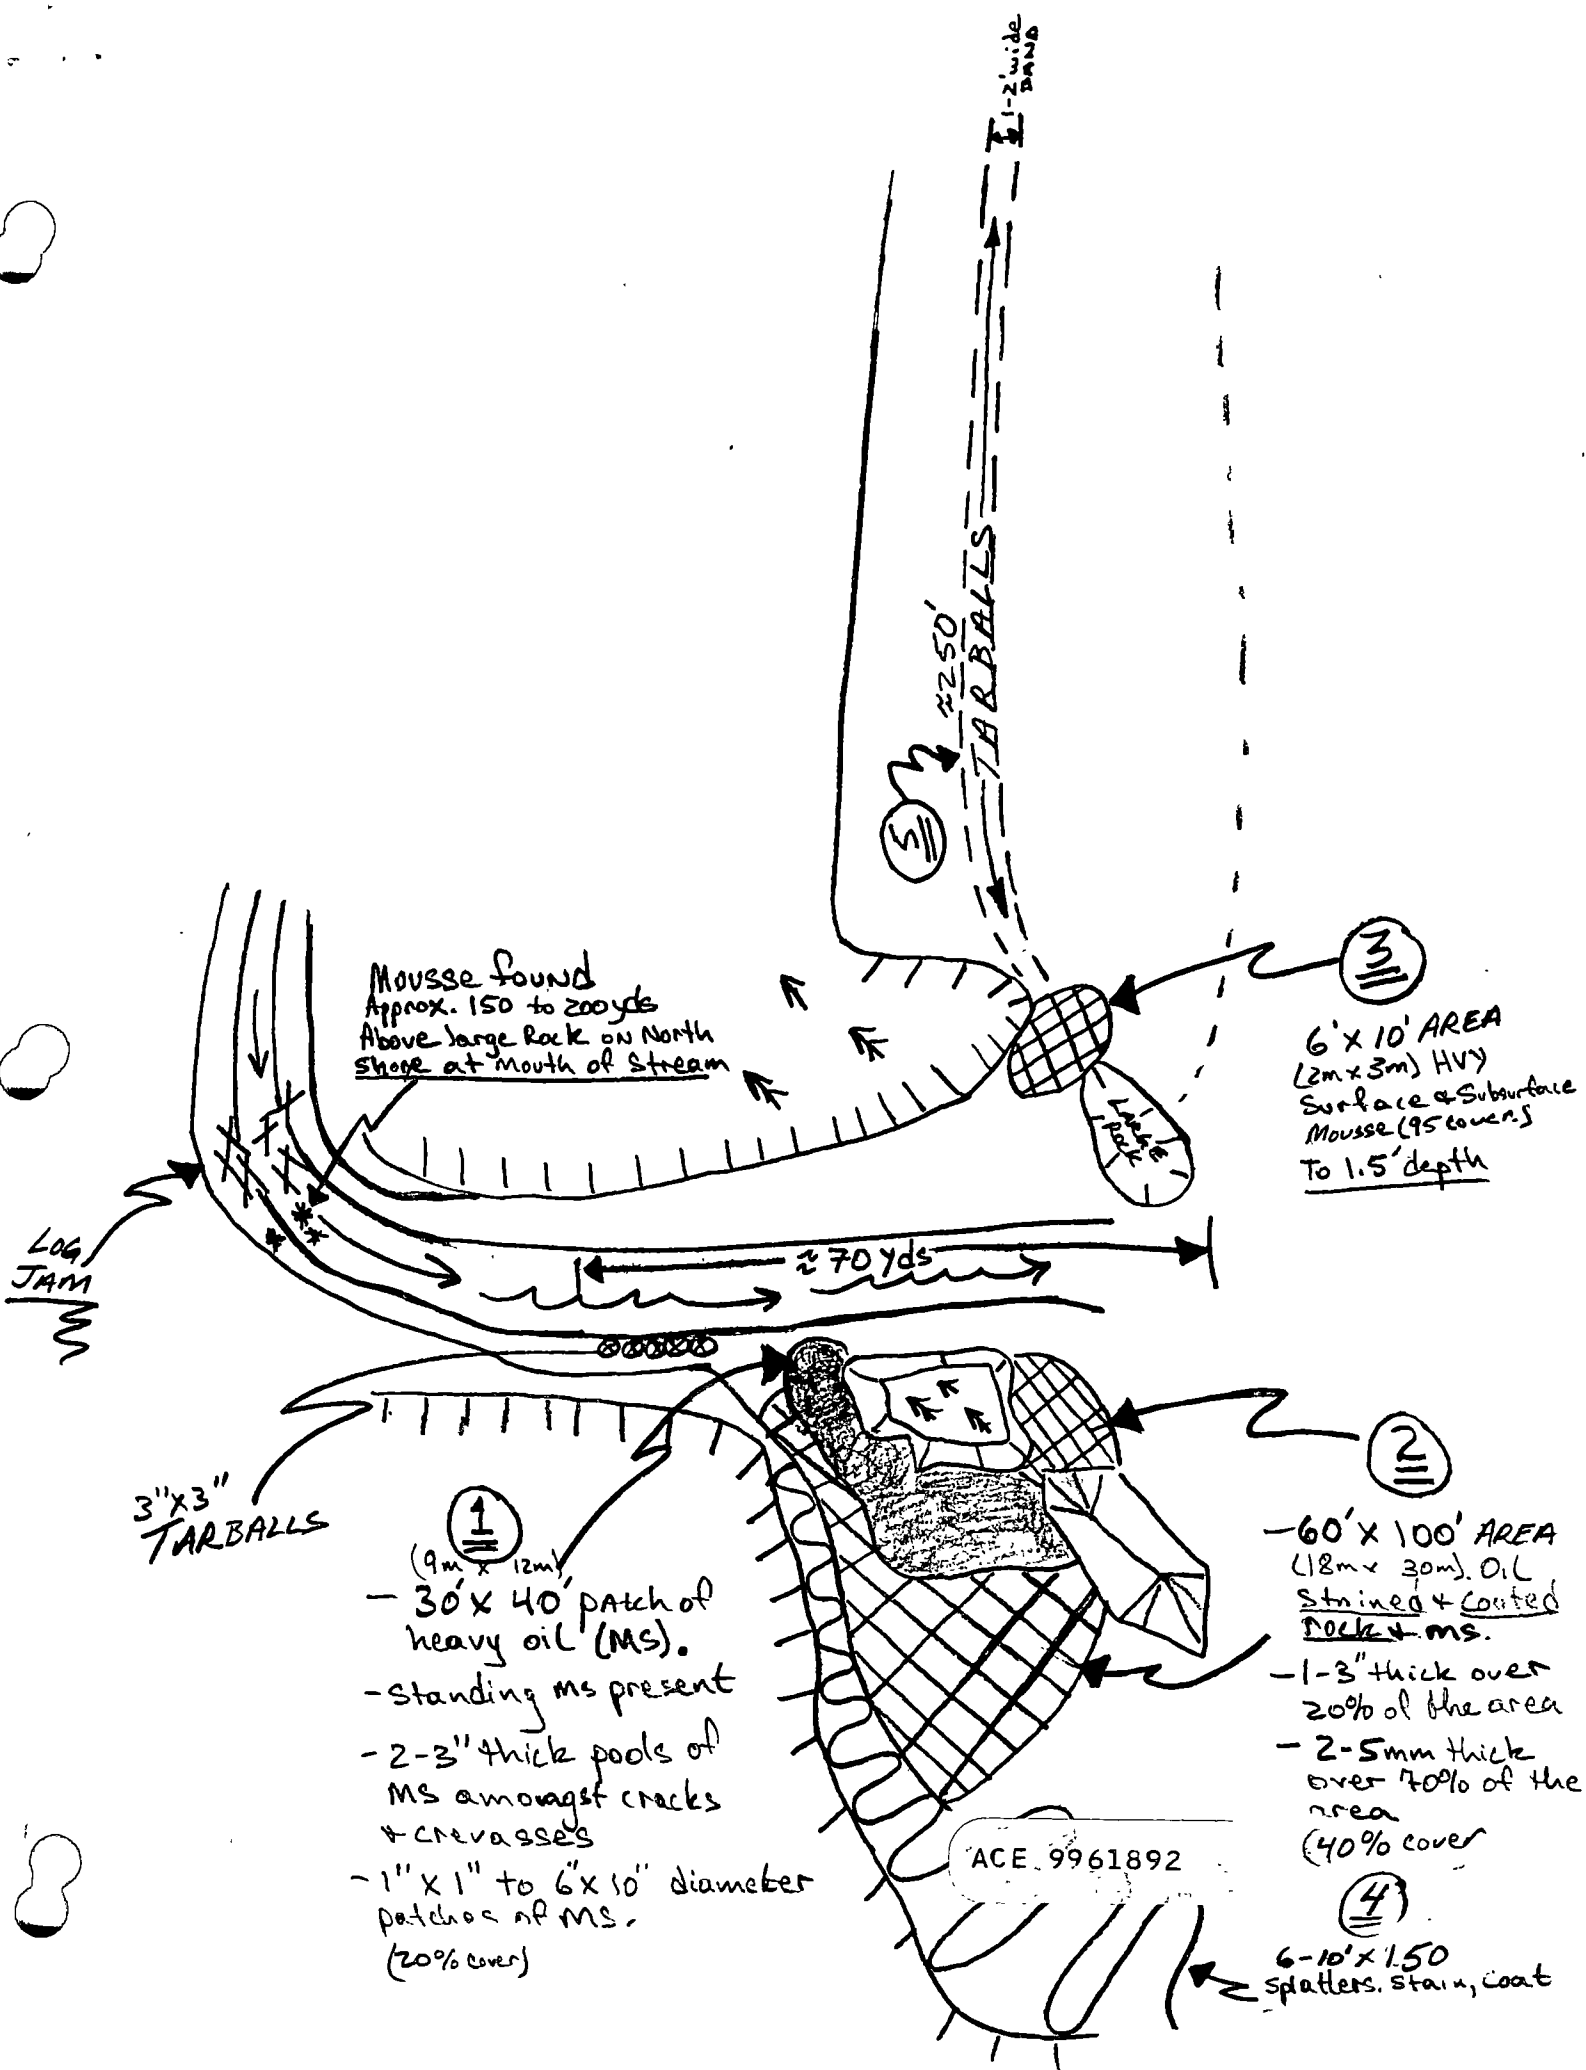 1-2' wide
BAND
≈250'
TARBALLS
5
Mousse found
Approx. 150 to 200yds
Above large Rock on North
Shore at Mouth of Stream
3
6' x 10' AREA
(2m x 3m) HVY
Surface & Subsurface
Mousse (95 cover)
To 1.5' depth
LARGE
Rock
LOG
JAM
≈ 70 yds
3"x3"
TARBALLS
1
(9m x 12m)
- 30' x 40' patch of
heavy oil (MS).
- Standing ms present
- 2-3" thick pools of
MS amongst cracks
& crevasses
- 1" x 1" to 6" x 10" diameter
patches of MS.
(20% cover)
2
- 60' x 100' AREA
(18m x 30m). OIL
Stained & Coated
rock & ms.
- 1-3" thick over
20% of the area
- 2-5mm thick
over 70% of the
area
(40% cover
ACE 9961892
4
6-10' x 150
splatters. Stain, coat